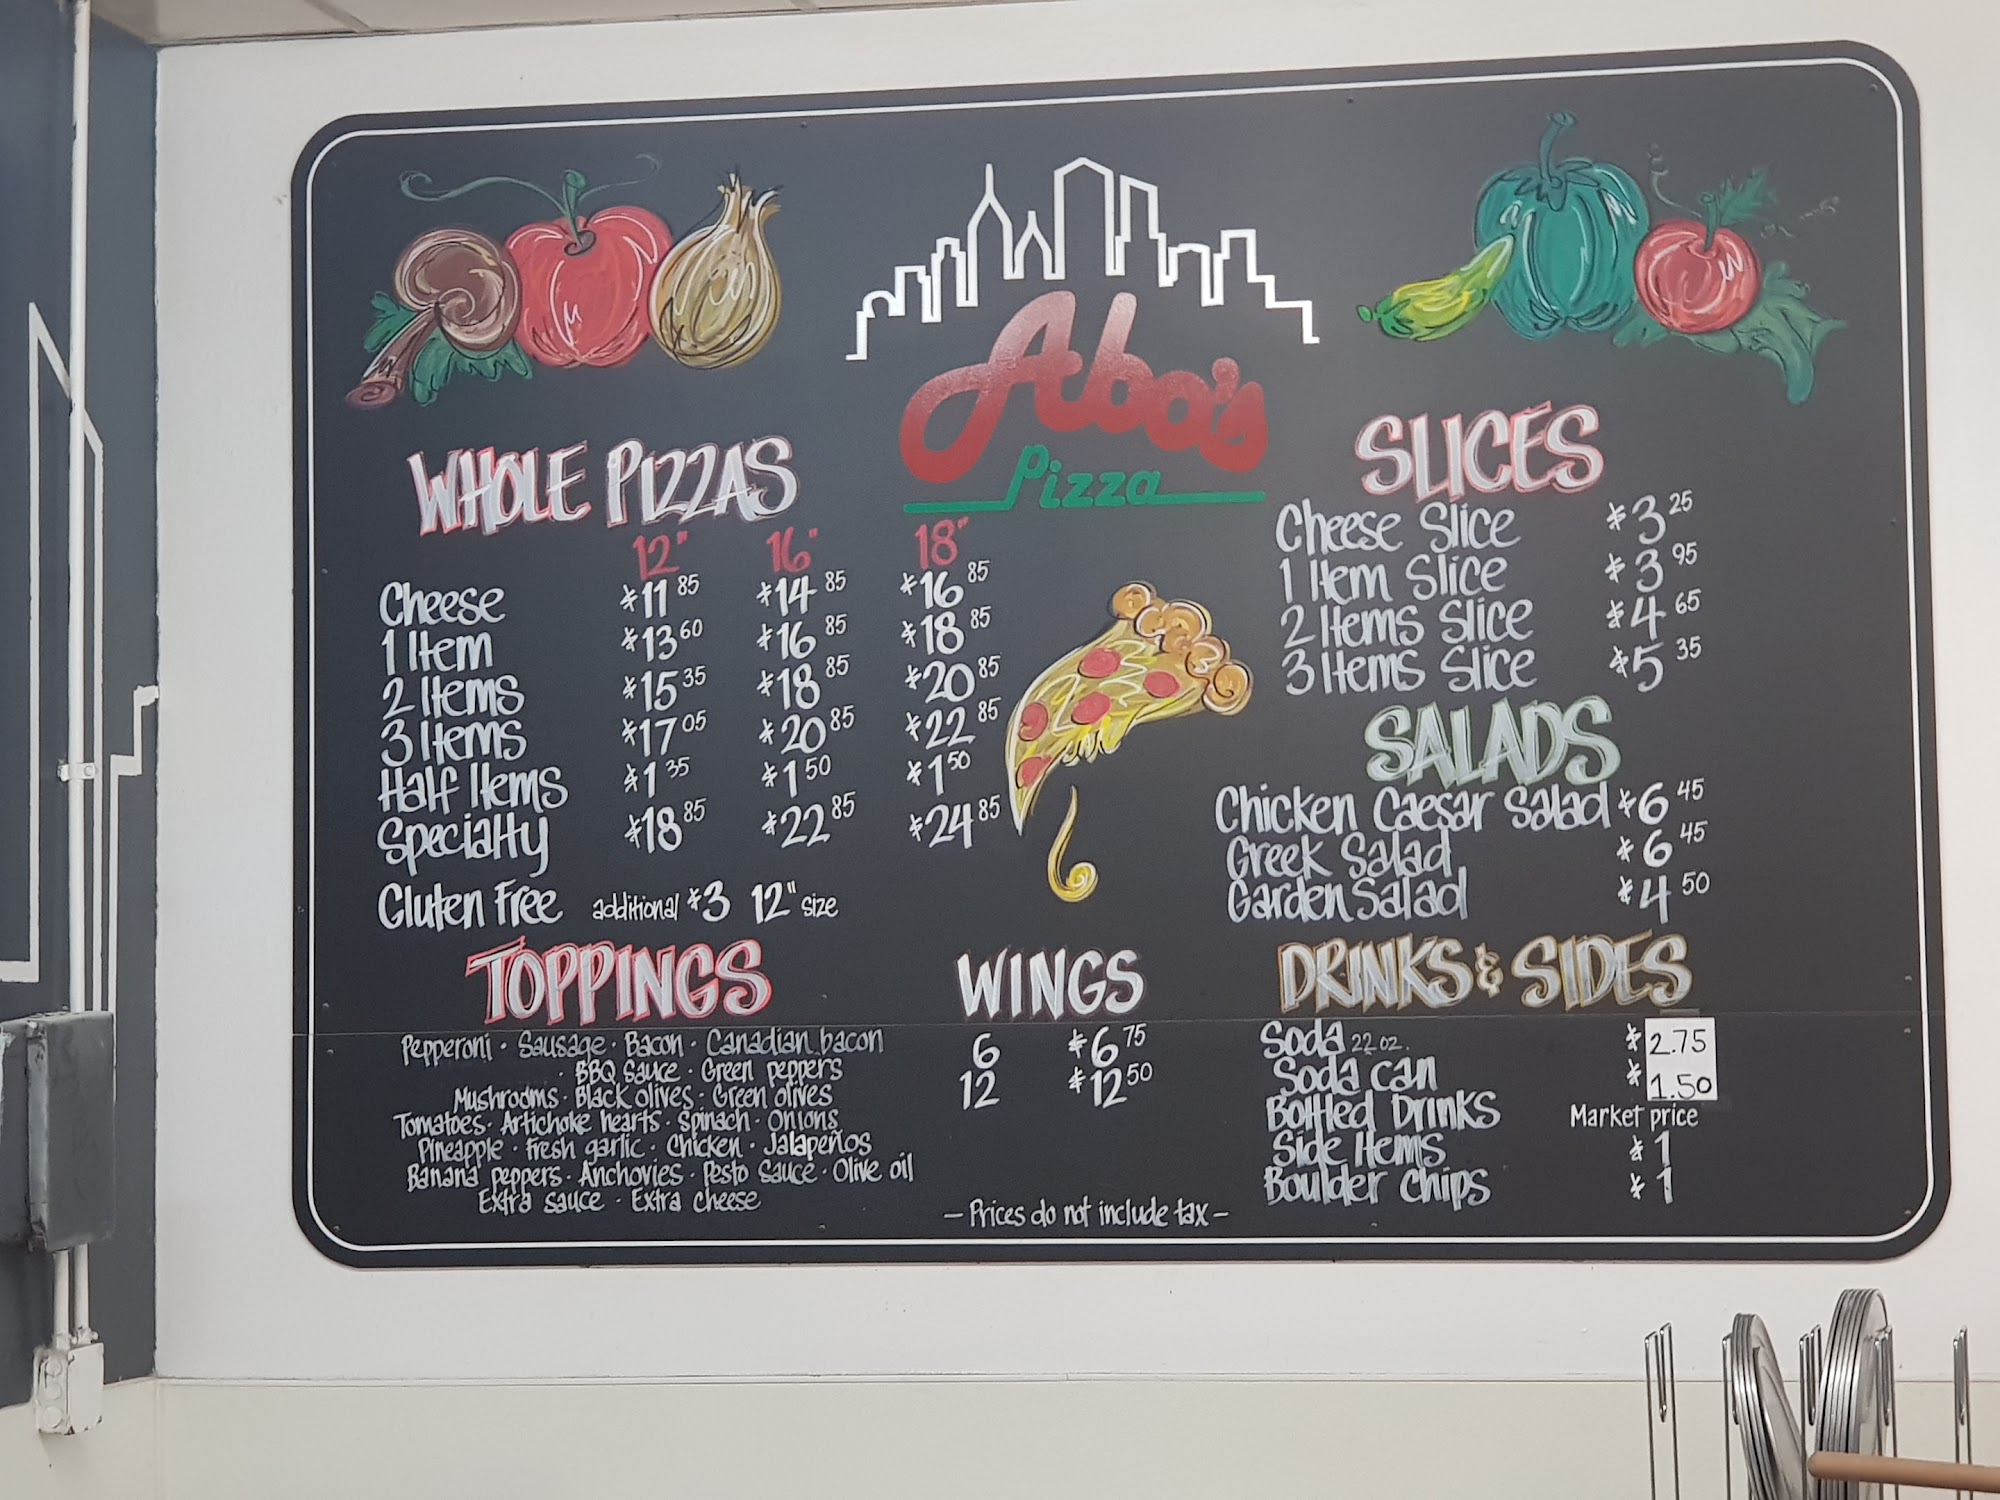 Abo's
Pizza
WHOLE PIZZAS
12" 16" 18"
Cheese $11.85 $14.85 $16.85
1 Item $13.60 $16.85 $18.85
2 Items $15.35 $18.85 $20.85
3 Items $17.05 $20.85 $22.85
Half Items $1.35 $1.50 $1.50
Specialty $18.85 $22.85 $24.85
Gluten Free additional $3 12" size
TOPPINGS
Pepperoni · Sausage · Bacon · Canadian bacon
· BBQ Sauce · Green peppers
Mushrooms · Black olives · Green olives
Tomatoes · Artichoke hearts · Spinach · Onions
Pineapple · Fresh garlic · Chicken · Jalapeños
Banana peppers · Anchovies · Pesto Sauce · Olive oil
Extra sauce · Extra cheese
WINGS
6 $6.75
12 $12.50
- Prices do not include tax -
SLICES
Cheese Slice $3.25
1 Item Slice $3.95
2 Items Slice $4.65
3 Items Slice $5.35
SALADS
Chicken Caesar Salad $6.45
Greek Salad $6.45
Garden Salad $4.50
DRINKS & SIDES
Soda 22 oz. $2.75
Soda can $1.50
Bottled Drinks Market price
Side Items $1
Boulder Chips $1